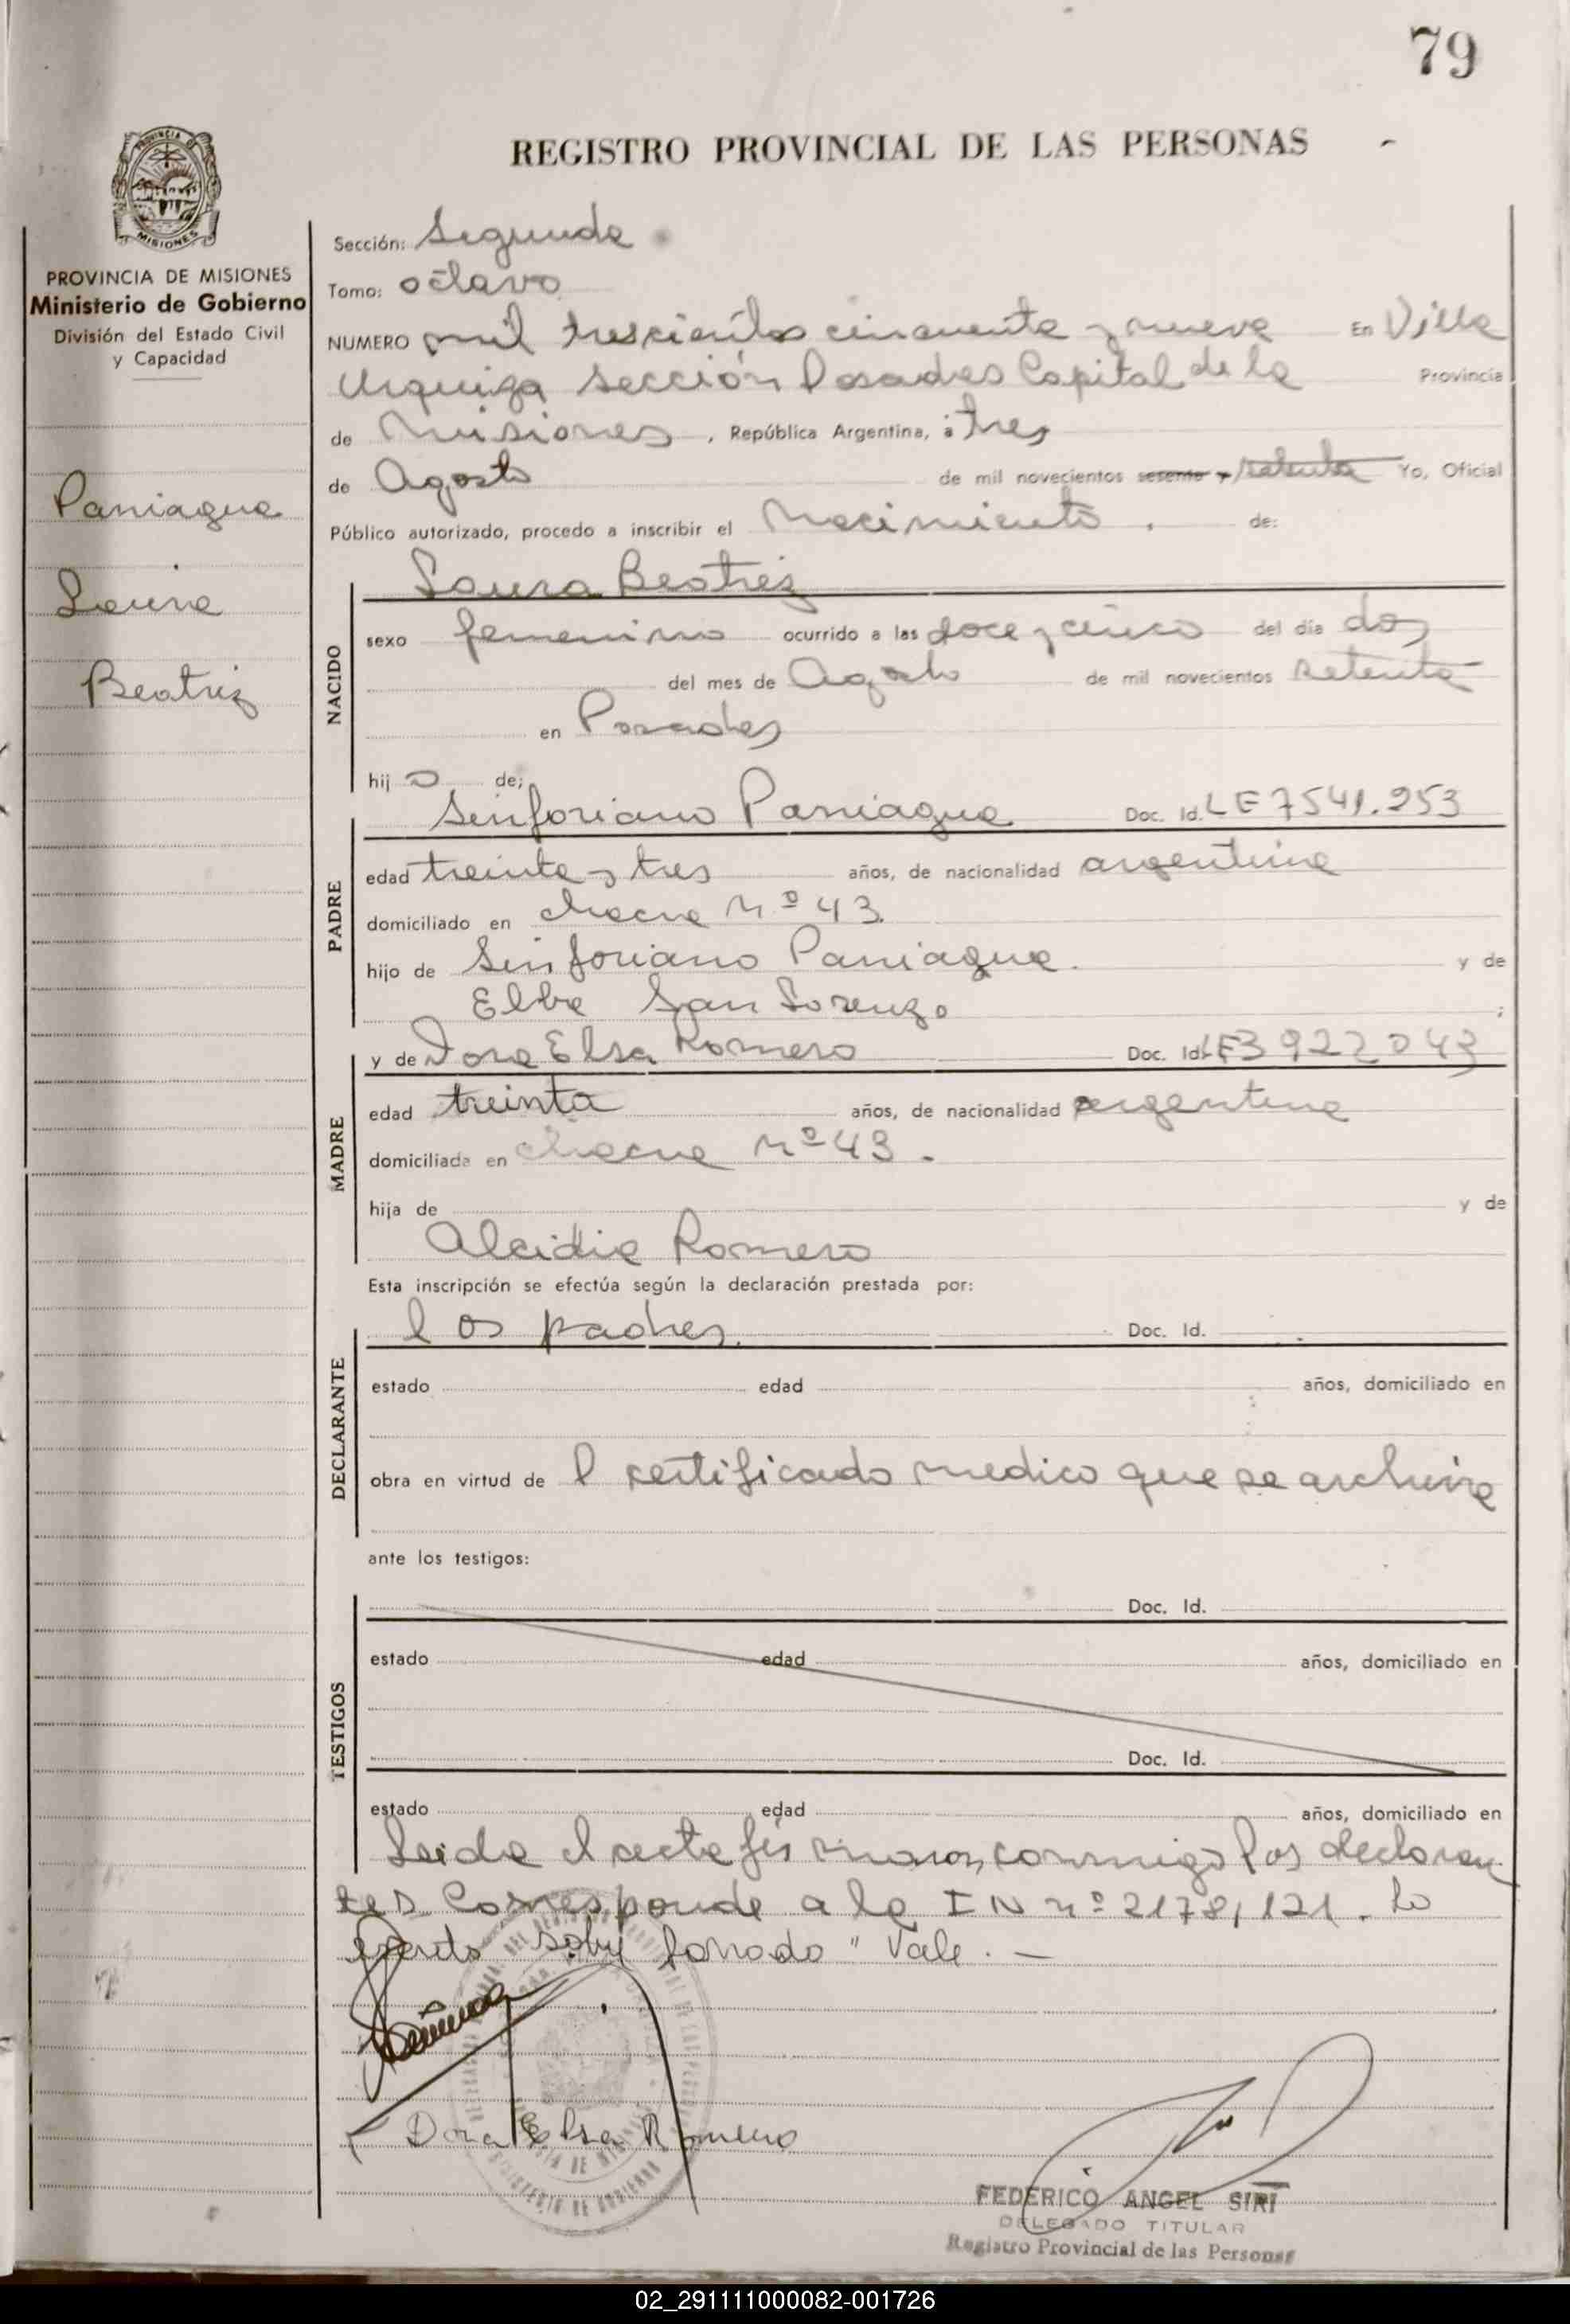 79
REGISTRO PROVINCIAL DE LAS PERSONAS
PROVINCIA MISIONES
PROVINCIA DE MISIONES
Ministerio de Gobierno
División del Estado Civil
y Capacidad
Paniagua
Laura
Beatriz
Sección: Segunda
Tomo: octavo
NUMERO mil trescientos cincuenta y nueve En Villa
Urquiza sección Posadas Capital de la Provincia
de Misiones, República Argentina, a tres
de Agosto de mil novecientos sesenta y setenta Yo, Oficial
Público autorizado, procedo a inscribir el Nacimiento. de:
Laura Beatriz
NACIDO
sexo femenino ocurrido a las doce y cinco del día dos
del mes de Agosto de mil novecientos setenta
en Posadas
hij a de;
Sinforiano Paniagua Doc. Id. LE 7541.253
PADRE
edad treinta y tres años, de nacionalidad argentina
domiciliado en chacra Nº 43
hijo de Sinforiano Paniagua. y de
Elba San Lorenzo;
y de Dora Elsa Romero Doc. Id. 3922043
MADRE
edad treinta años, de nacionalidad argentina
domiciliada en chacra nº 43.
hija de y de
Alcidia Romero
Esta inscripción se efectúa según la declaración prestada por:
los padres. Doc. Id.
DECLARANTE
estado edad años, domiciliado en
obra en virtud de l certificado medico que se archiva
ante los testigos:
Doc. Id.
TESTIGOS
estado edad años, domiciliado en
Doc. Id.
estado edad años, domiciliado en
Leida el acta firmaron conmigo los declaran
tes Corresponde a la I N nº 2178,121. Lo
"sobre borrado" Vale. —
Dora Elsa Romero
FEDERICO ANGEL SIRI
DELEGADO TITULAR
Registro Provincial de las Personas
02_291111000082-001726